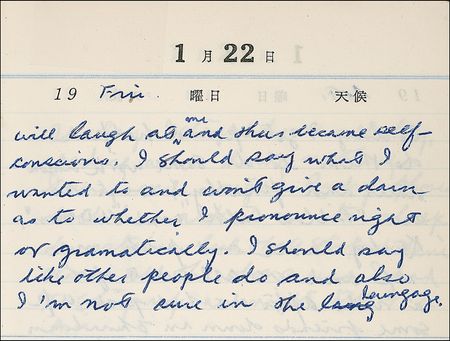 1月22日
19 Fri 曜日 天候
will laugh at me and thus became self-
conscious. I should say what I
wanted to and won't give a darn
as to whether I pronounce right
or gramatically. I should say
like other people do and also
I'm not sure in the laungage.